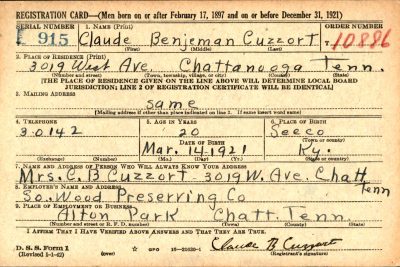 REGISTRATION CARD—(Men born on or after February 17, 1897 and on or before December 31, 1921)
SERIAL NUMBER 1. NAME (Print) ORDER NUMBER
T 915 Claude Benjeman Cuzzort 10886
(First) (Middle) (Last)
2. PLACE OF RESIDENCE (Print)
3019 West Ave. Chattanooga Tenn.
(Number and street) (Town, township, village, or city) (County) (State)
[THE PLACE OF RESIDENCE GIVEN ON THE LINE ABOVE WILL DETERMINE LOCAL BOARD
JURISDICTION; LINE 2 OF REGISTRATION CERTIFICATE WILL BE IDENTICAL]
3. MAILING ADDRESS
same
[Mailing address if other than place indicated on line 2. If same insert word same]
4. TELEPHONE 5. AGE IN YEARS 6. PLACE OF BIRTH
3-0142 20 Seeco
DATE OF BIRTH (Town or county)
Mar. 14-1921 Ky.
(Exchange) (Number) (Mo.) (Day) (Yr.) (State or country)
7. NAME AND ADDRESS OF PERSON WHO WILL ALWAYS KNOW YOUR ADDRESS
Mrs. C. B Cuzzort 3019 W. Ave. Chatt Tenn
8. EMPLOYER'S NAME AND ADDRESS
So. Wood Preserving Co
9. PLACE OF EMPLOYMENT OR BUSINESS
Alton Park Chatt. Tenn.
(Number and street or R. F. D. number) (Town) (County) (State)
I AFFIRM THAT I HAVE VERIFIED ABOVE ANSWERS AND THAT THEY ARE TRUE.
D. S. S. Form 1
(Revised 1-1-42) (over) GPO 16-21630-1 Claude B Cuzzort